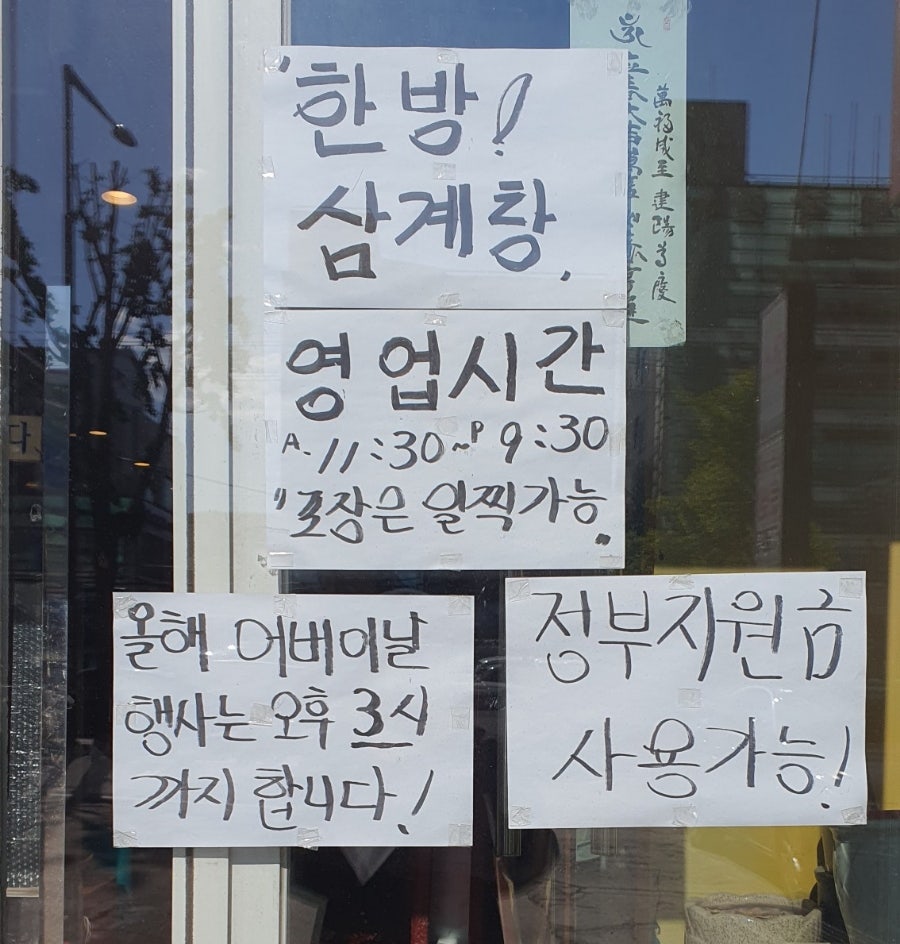 '한방!
삼계탕.
영업시간
A. 11:30~P 9:30
"포장은 일찍가능.
올해 어버이날
행사는 오후 3시
까지 합니다!
정부지원금
사용가능!
萬福成至 建陽多慶
다.